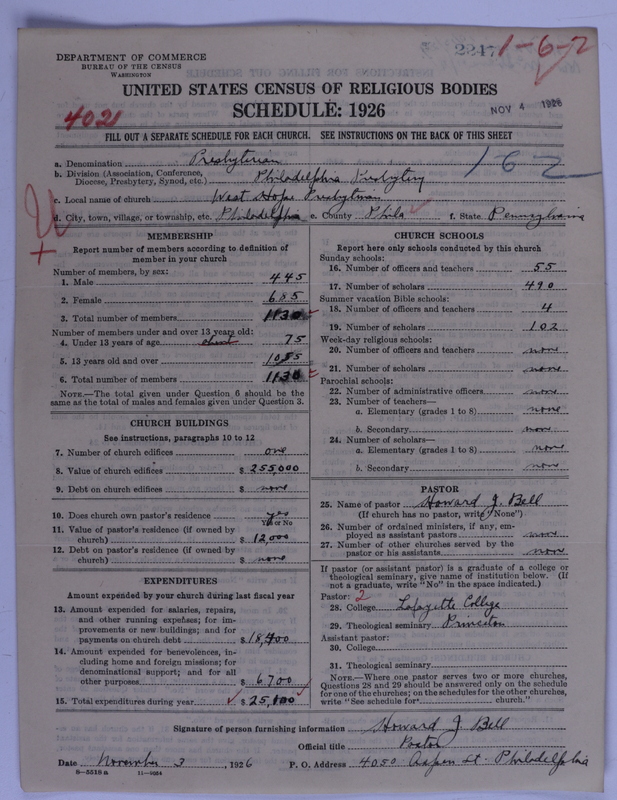 2247 1-6-2
DEPARTMENT OF COMMERCE
BUREAU OF THE CENSUS
WASHINGTON
UNITED STATES CENSUS OF RELIGIOUS BODIES
SCHEDULE: 1926
NOV 4 1926
4021
FILL OUT A SEPARATE SCHEDULE FOR EACH CHURCH. SEE INSTRUCTIONS ON THE BACK OF THIS SHEET
a. Denomination Presbyterian
162
b. Division (Association, Conference, Diocese, Presbytery, Synod, etc.) Philadelphia Presbytery
c. Local name of church West Hope Presbyterian
d. City, town, village, or township, etc. Philadelphia e. County Phila f. State Pennsylvania
MEMBERSHIP
Report number of members according to definition of
member in your church
Number of members, by sex:
1. Male 445
2. Female 685
3. Total number of members 1130
Number of members under and over 13 years old:
4. Under 13 years of age 75
5. 13 years old and over 1055
6. Total number of members 1130
NOTE.—The total given under Question 6 should be
same as the total of males and females given under Question 3.
CHURCH BUILDINGS
See instructions, paragraphs 10 to 12
7. Number of church edifices one
8. Value of church edifices $ 255,000
9. Debt on church edifices $ none
10. Does church own pastor's residence yes
Yes or No
11. Value of pastor's residence (if owned by
church) $ 12,000
12. Debt on pastor's residence (if owned by
church) $ none
EXPENDITURES
Amount expended by your church during last fiscal year
13. Amount expended for salaries, repairs,
and other running expenses; for im-
provements or new buildings; and for
payments on church debt $ 18,400
14. Amount expended for benevolences, in-
cluding home and foreign missions; for
denominational support; and for all
other purposes $ 6,700
15. Total expenditures during year $ 25,100
CHURCH SCHOOLS
Report here only schools conducted by this church
Sunday schools:
16. Number of officers and teachers 55
17. Number of scholars 490
Summer vacation Bible schools:
18. Number of officers and teachers 4
19. Number of scholars 102
Week-day religious schools:
20. Number of officers and teachers none
21. Number of scholars none
Parochial schools:
22. Number of administrative officers none
23. Number of teachers—
a. Elementary (grades 1 to 8) none
b. Secondary none
24. Number of scholars—
a. Elementary (grades 1 to 8) none
b. Secondary none
PASTOR
25. Name of pastor Howard J. Bell
(If church has no pastor, write "None")
26. Number of ordained ministers, if any, em-
ployed as assistant pastors none
27. Number of other churches served by the
pastor or his assistants none
If pastor (or assistant pastor) is a graduate of a college or
theological seminary, give name of institution below. (If
not a graduate, write "No" in the space indicated.)
Pastor: 2
28. College Lafayette College
29. Theological seminary Princeton
Assistant pastor:
30. College
31. Theological seminary
NOTE.—Where one pastor serves two or more churches,
Questions 28 and 29 should be answered only on the schedule
for one of the churches; on the schedules for the other churches,
write "See schedule for church."
Signature of person furnishing information Howard J Bell
Official title Pastor
Date November 3, 1926 P. O. Address 4050 Aspen St. Philadelphia
8—5518 a 11—9024